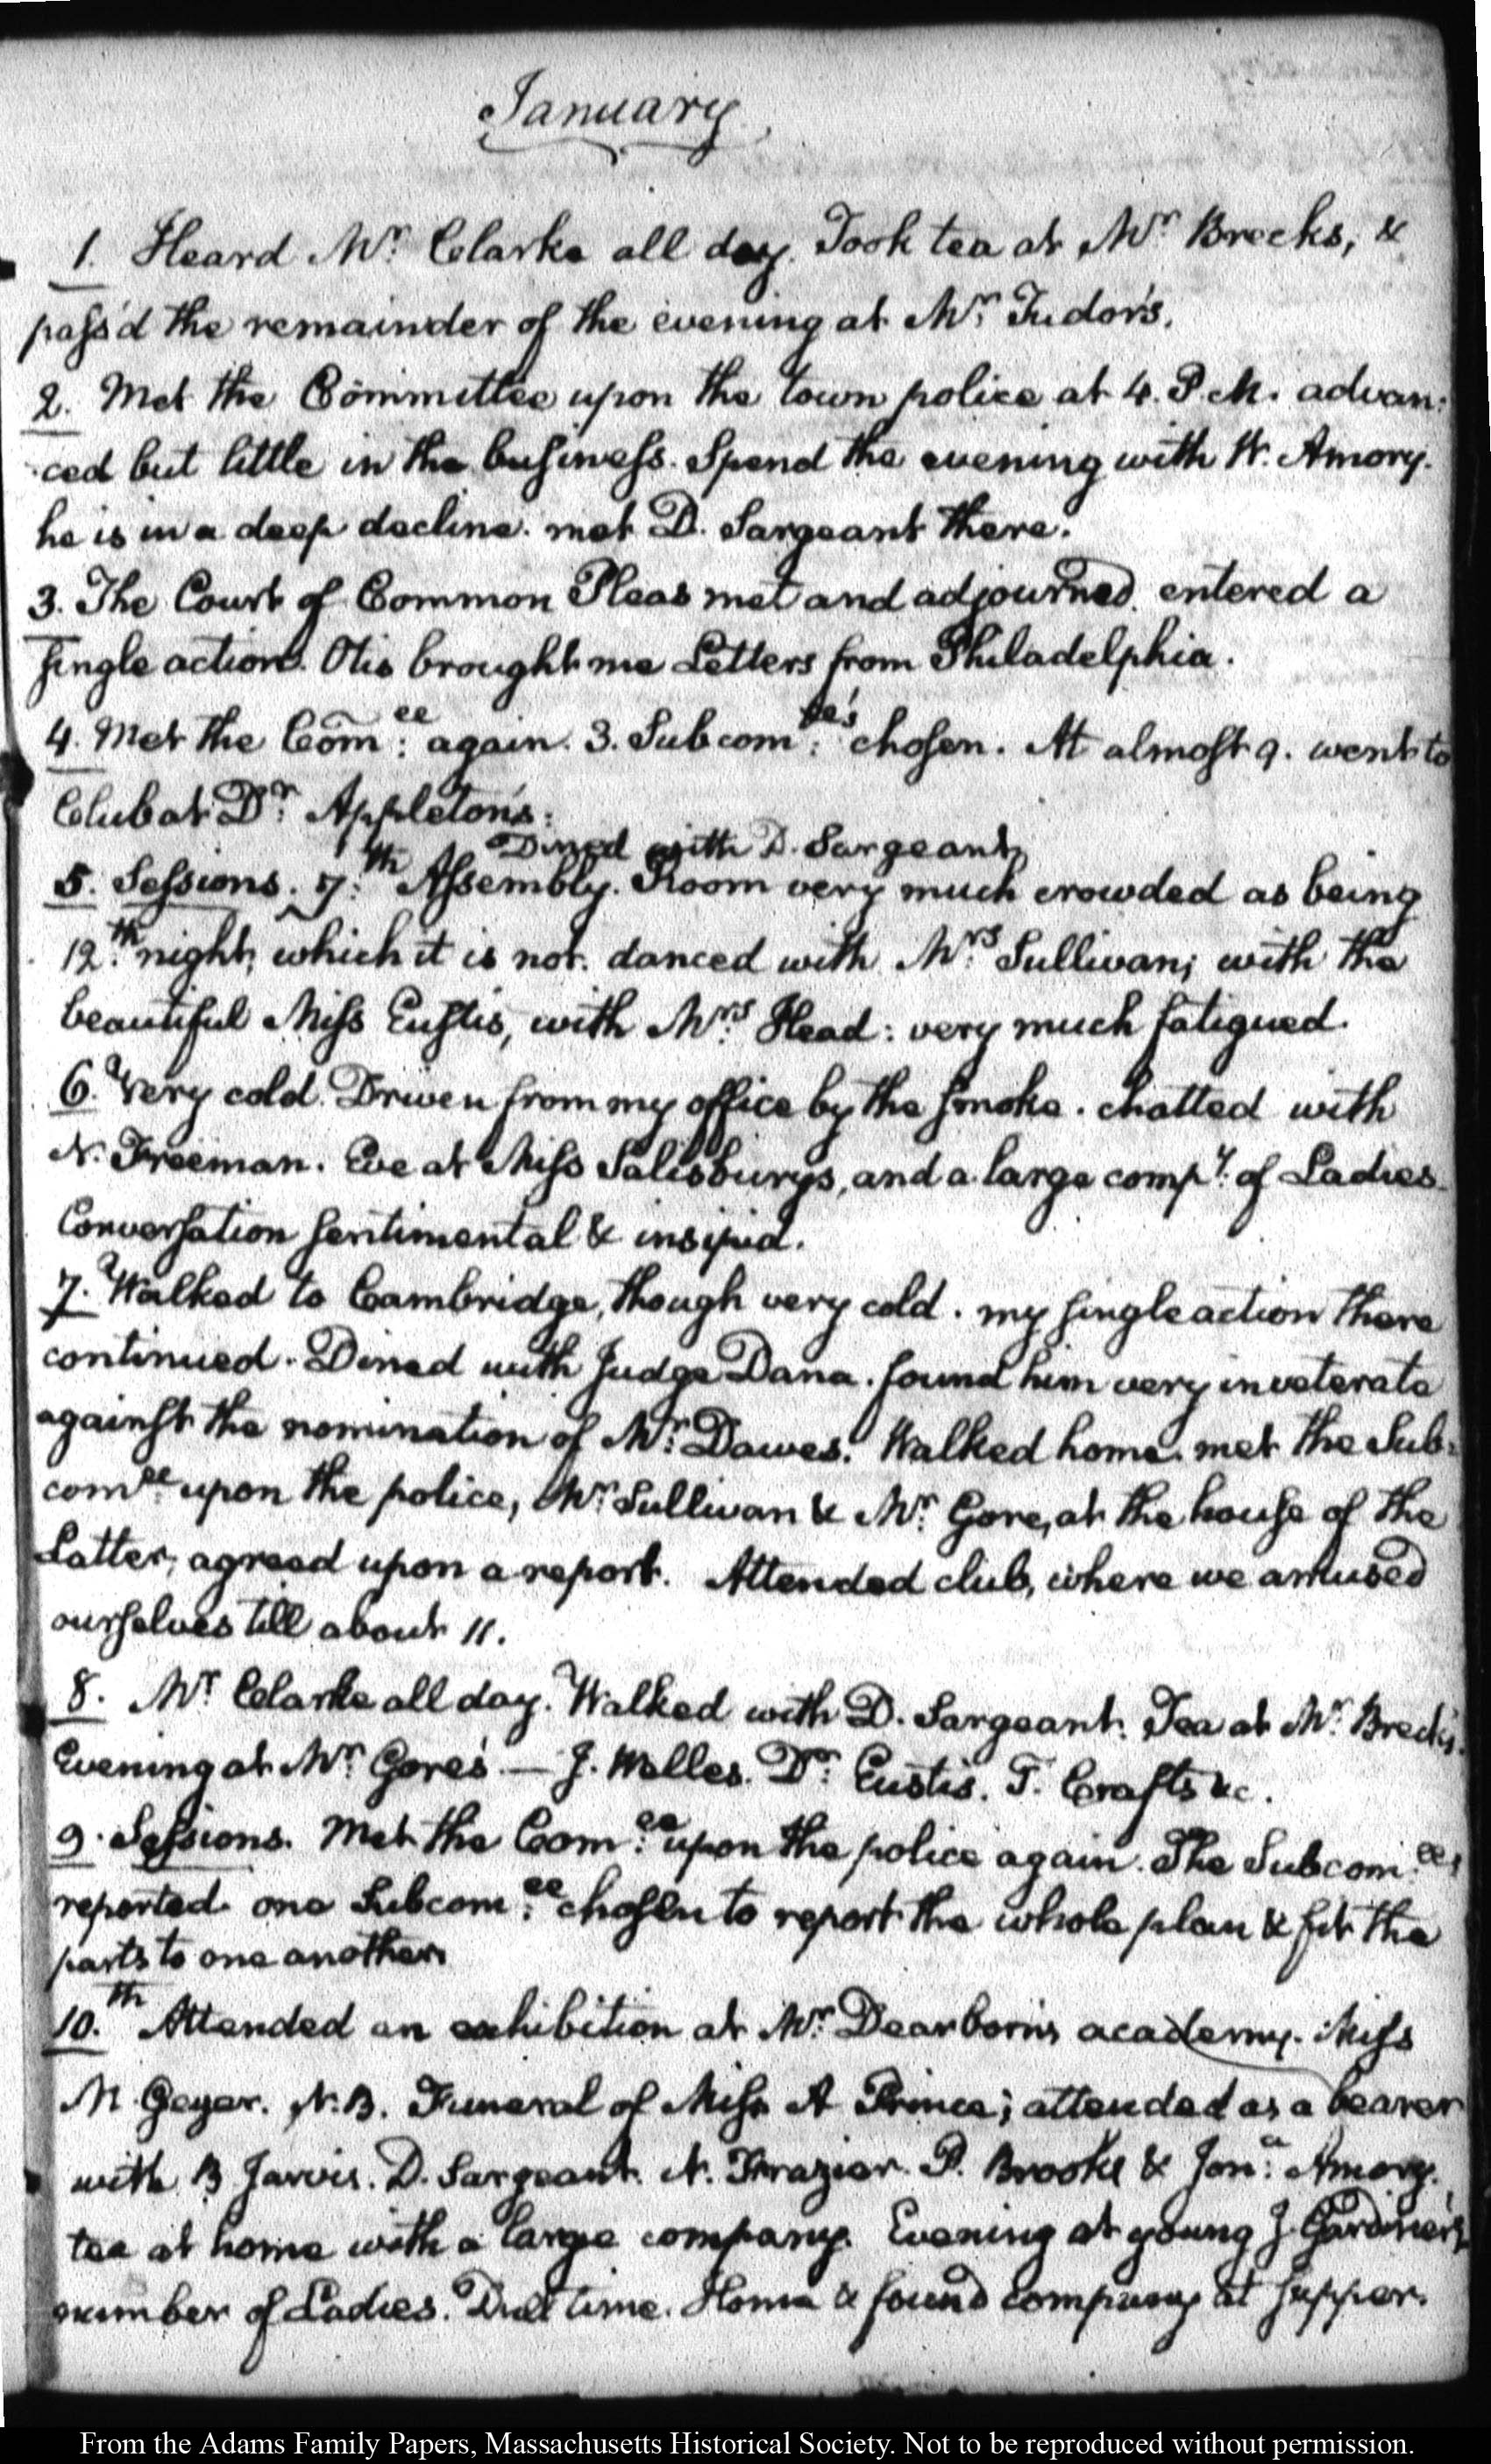 January
1. Heard Mr. Clarke all day. Took tea at Mr. Brecks, &
pass'd the remainder of the evening at Mr. Tudor's.
2. Met the Committee upon the town police at 4. P.M. advan:
ced but little in the business. Spend the evening with W. Amory.
he is in a deep decline. met D. Sargeant there.
3. The Court of Common Pleas met and adjourned. entered a
single action. Otis brought me Letters from Philadelphia.
4. Met the Com:ee again. 3. Subcom:ee's chosen. At almost 9. went to
Club at Dr. Appleton's:
Dined with D. Sargeant
5. Sessions. 7:th Assembly. Room very much crowded as being
12:th night, which it is not. danced with Mrs. Sullivan; with the
beautiful Miss Eustis, with Mrs. Head: very much fatigued.
6. Very cold. Driven from my office by the smoke. chatted with
N. Freeman. Eve at Miss Salisburys, and a large compy. of Ladies
Conversation sentimental & insipid.
7. Walked to Cambridge, though very cold. my single action there
continued. Dined with Judge Dana. found him very inveterate
against the nomination of Mr. Dawes. Walked home. met the Sub:
comee. upon the police, Mr. Sullivan & Mr. Gore, at the house of the
Latter, agreed upon a report. Attended club, where we amused
ourselves till about 11.
8. Mr. Clarke all day. Walked with D. Sargeant. Tea at Mr. Breck's.
Evening at Mr. Gore's — J. Welles. Dr. Eustis. T. Crafts &c.
9. Sessions. Met the Com:ee upon the police again. The Subcom:ees
reported. one Subcom:ee chosen to report the whole plan & fit the
parts to one another
10.th Attended an exhibition at Mr. Dearborn's academy. Miss
M Geyer. N.B. Funeral of Miss A Prince; attended as a bearer
with B Jarvis. D. Sargeant. N. Frazier. P. Brooks & Jon:a Amory.
tea at home with a large company. Evening at young J. Gardiner's
number of Ladies. Dull time. Home & found company at supper.
From the Adams Family Papers, Massachusetts Historical Society. Not to be reproduced without permission.